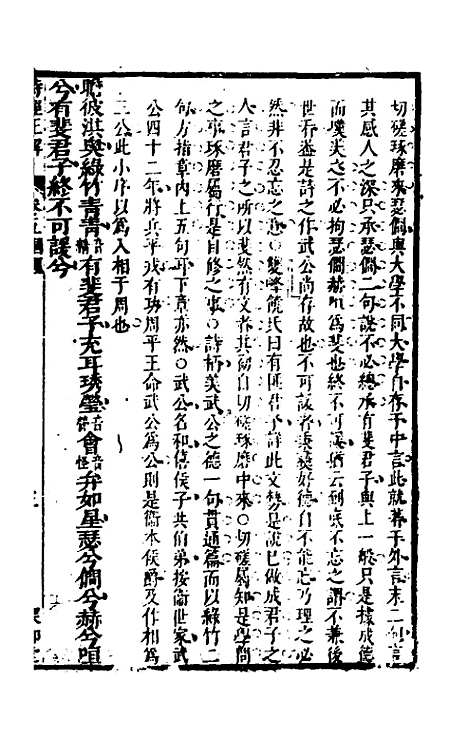 切磋琢磨來瑟僩與大學不同大學自存乎中言此就著于外言末二句言
其感人之深只承瑟僩二句說不必總承有斐君子與上一般只是據成德
而嘆美之不必拘瑟僩赫咺為斐也終不可諼猶云到底不忘之謂不兼後
世看盖是詩之作武公尚存故也不可諼者秉彝好德自不能忘乃理之必
然非不忍忘之也○雙峯饒氏曰有匪君子詳此文勢是說已做成君子之
人言君子之所以斐然有文者其初自切磋琢磨中來○切磋屬知是學問
之事琢磨屬行是自修之事○詩柄美武公之德一句貫通篇而以綠竹二
句方指章內上五句耳下章亦然○武公名和僖侯子共伯弟按衛世家武
公四十二年將兵平戎有功周平王命武公為公則是衞本侯爵及作相為
三公此小序以為入相于周也
瞻彼淇奧綠竹青青音精有斐君子充耳琇瑩音營會音怪弁如星瑟兮僩兮赫兮咺
兮有斐君子終不可諼兮